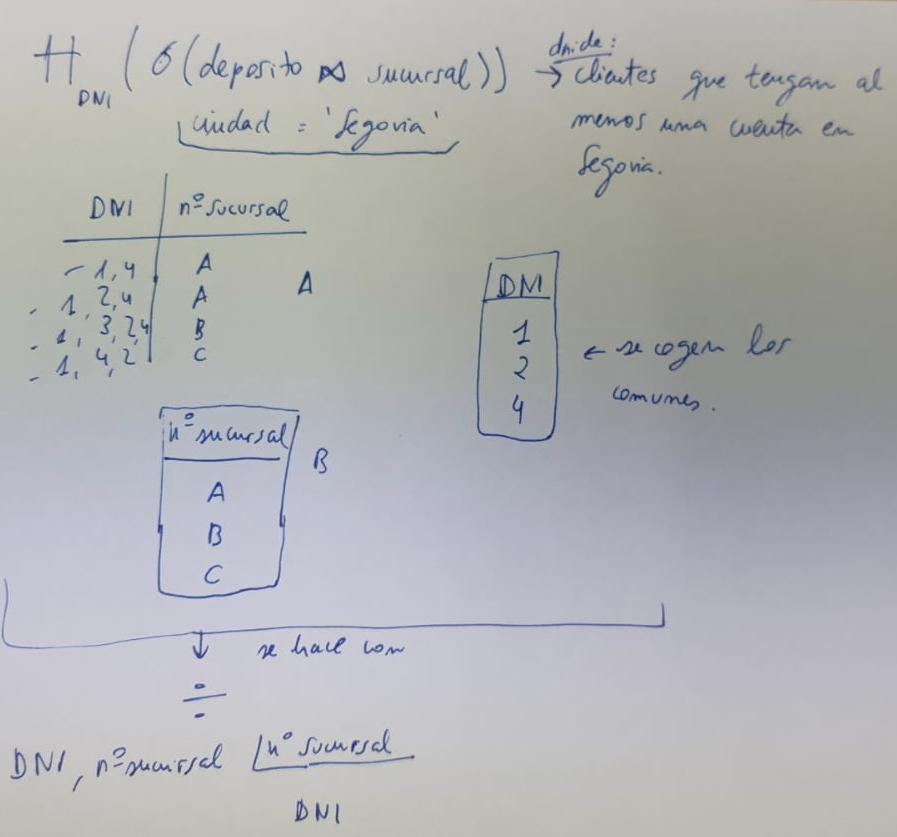 Π DNI (σ(deposito ⋈ sucursal)) → clientes que tengan al
ciudad = 'Segovia'
menos una cuenta en
Segovia.
DNI | nº sucursal
- 1, 4 | A
- 1, 2, 4 | A
- 1, 3, 2, 4 | B
- 1, 4, 2 | C
A
DNI
1
2
4
← se cogen los
comunes.
nº sucursal
A
B
C
B
↓ se hace con
÷
DNI, nº sucursal | nº sucursal
DNI